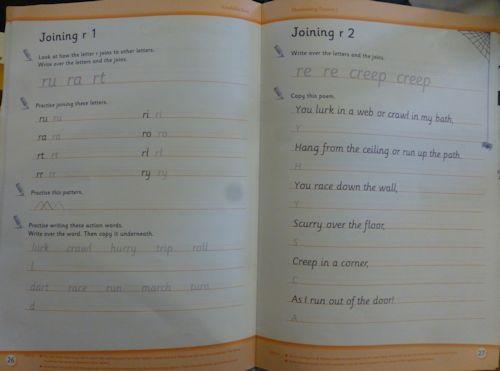 Joining r 1
Look at how the letter r joins to other letters.
Write over the letters and the joins.
ru ra rt
Practise joining these letters.
ru ru ri ri
ra ra ro ro
rt rt rl rl
rr rr ry ry
Practise this pattern.
Practise writing these action words.
Write over the word. Then copy it underneath.
lurk crawl hurry trip roll
l
dart race run march turn
d
26
Joining r 2
Write over the letters and the joins.
re re creep creep
Copy this poem.
You lurk in a web or crawl in my bath,
Y
Hang from the ceiling or run up the path.
H
You race down the wall,
Y
Scurry over the floor,
S
Creep in a corner,
C
As I run out of the door!
A
27